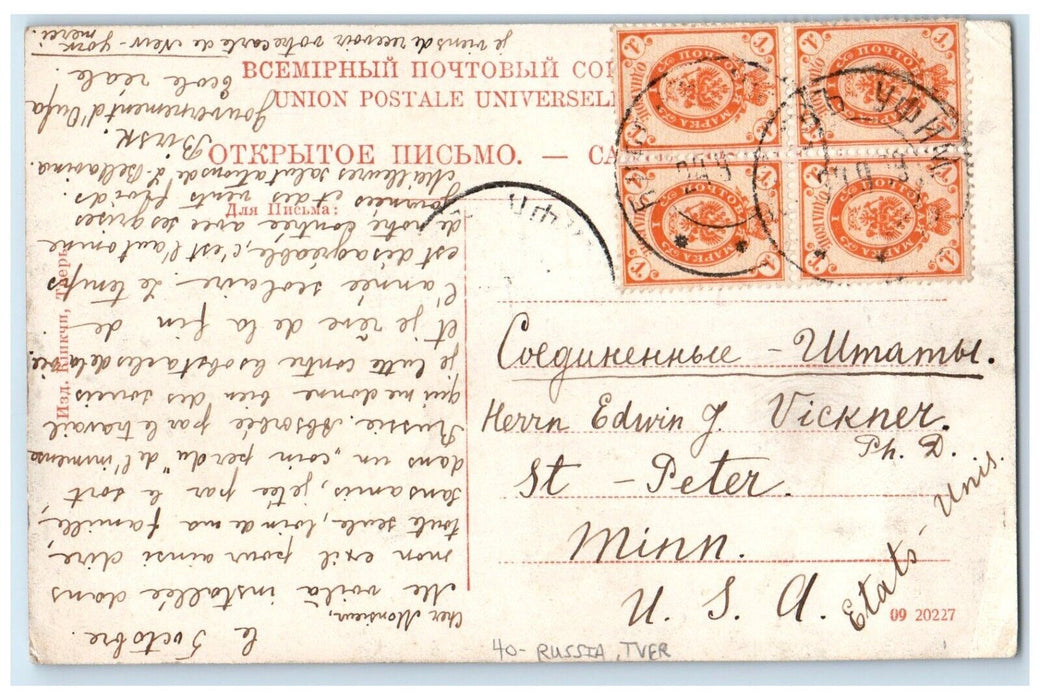 ВСЕМІРНЫЙ ПОЧТОВЫЙ СОЮ
UNION POSTALE UNIVERSELL
ОТКРЫТОЕ ПИСЬМО. — CA
Для Письма:
Соединенные - Штаты.
Herrn Edwin J. Vickner.
Ph. D.
St - Peter.
Minn.
U. S. A.
Etats - Unis.
09 20227
40- RUSSIA, TVER
Изд. Кликчи, Тверь.
le
5 octobre.
Cher Monsieur,
Me voilà installée dans
mon exil pour ainsi dire,
toute seule, loin de ma famille,
sans amis, jetée par le sort
dans un „coin perdu" de l'immense
Russie. Absorbée par le travail
qui me donne bien des soucis
je lutte contre les obstacles de la vie
et je rêve de la fin de
l'année scolaire. Le temps
est désagréable, c'est l'automne
de notre contrée avec ses grises
journées et des vents froids.
Meilleures salutations de
Birsk.
Gouvernement d'Oufa
école réale.
je viens de recevoir votre carte de New-York
merci.